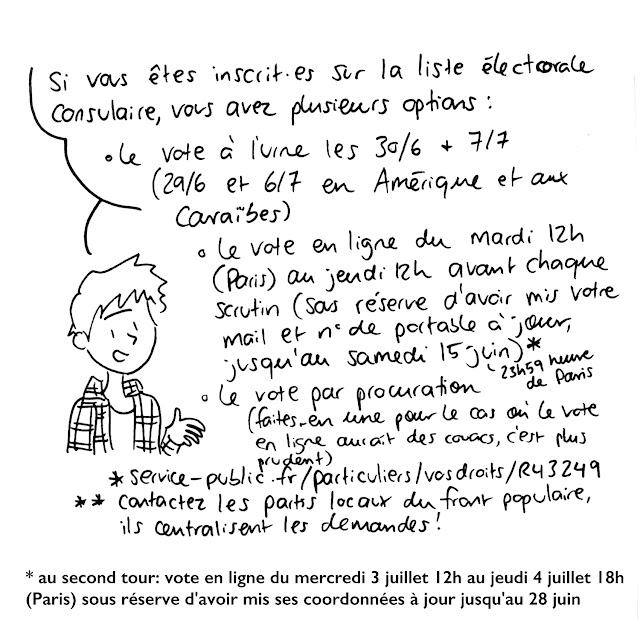 Si vous êtes inscrit·es sur la liste électorale
consulaire, vous avez plusieurs options :
• Le vote à l'urne les 30/6 + 7/7
(29/6 et 6/7 en Amérique et aux
Caraïbes)
• Le vote en ligne du mardi 12h
(Paris) au jeudi 12h avant chaque
scrutin (sas réserve d'avoir mis votre
mail et n° de portable à jour,
jusqu'au samedi 15 juin)*
23h59 heure
de Paris
• Le vote par procuration
(faites-en une pour le cas où le vote
en ligne aurait des couacs, c'est plus
prudent)
* service-public.fr/particuliers/vosdroits/R43249
** contactez les partis locaux du front populaire,
ils centralisent les demandes !
* au second tour: vote en ligne du mercredi 3 juillet 12h au jeudi 4 juillet 18h
(Paris) sous réserve d'avoir mis ses coordonnées à jour jusqu'au 28 juin